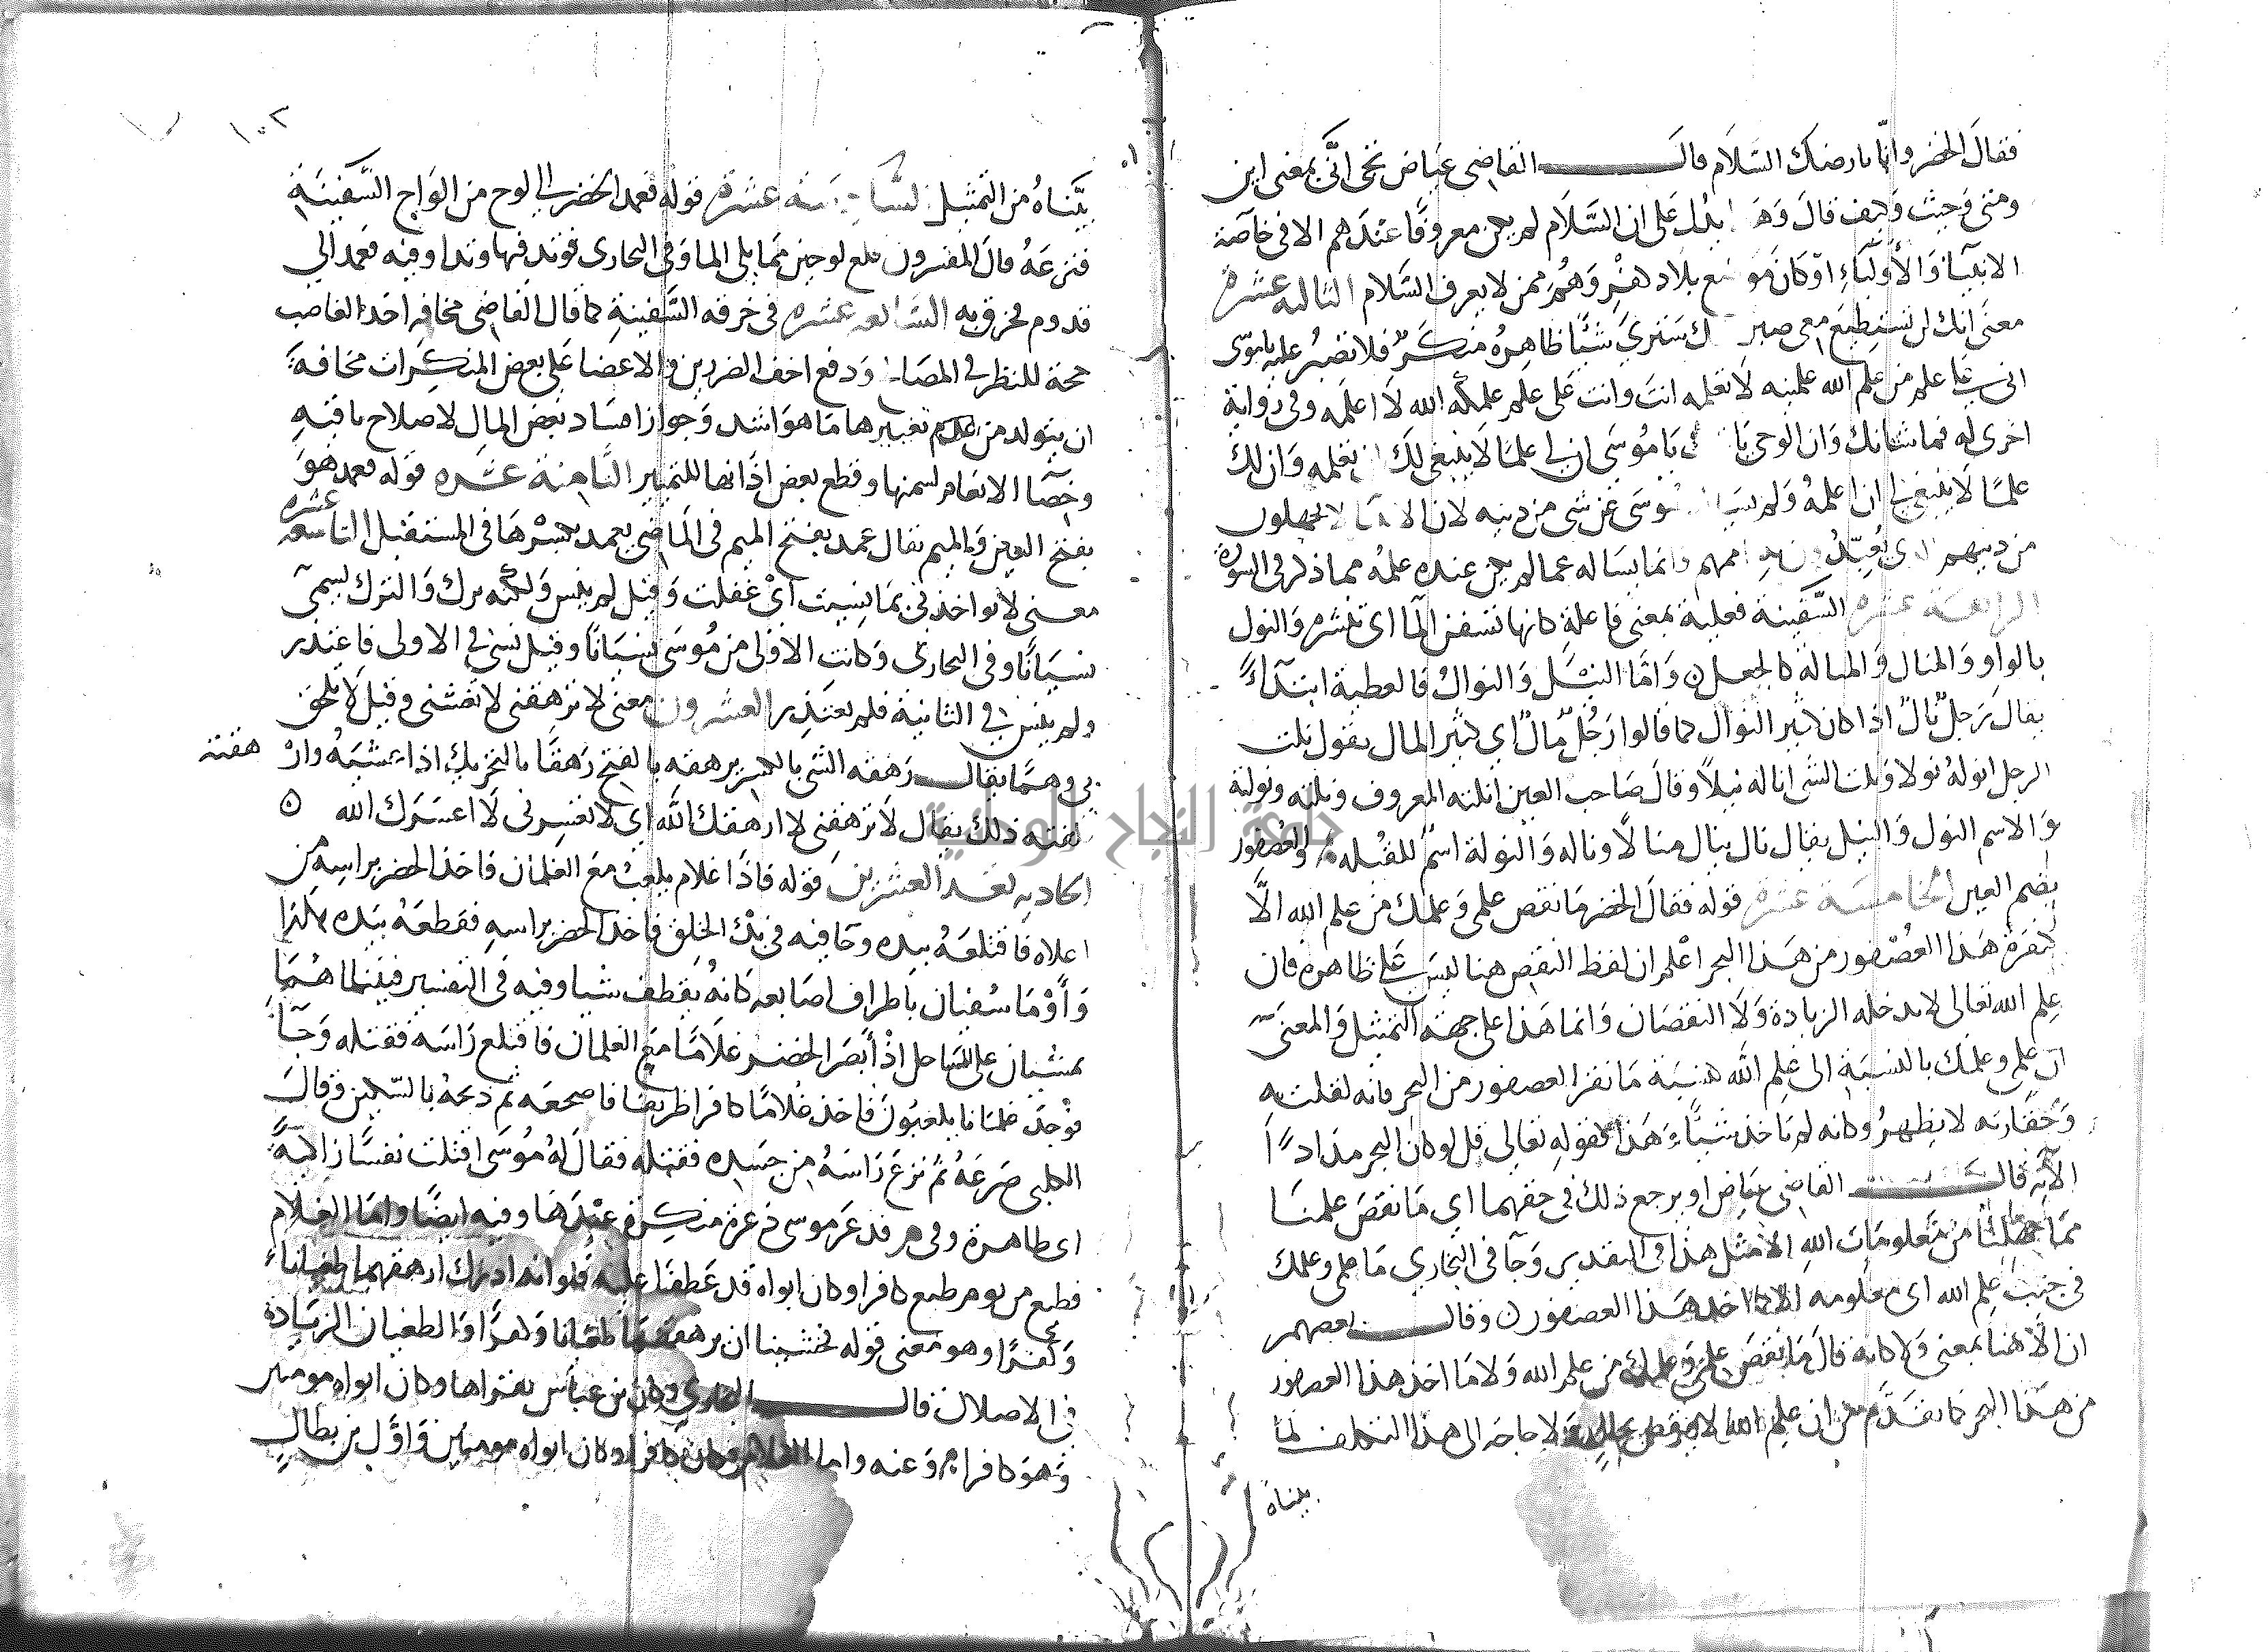 فقال الخضر وانّا بارضك السّلام قال القاضى عياض تجى انّى بمعنى اين
ومتى وحيث وكيف قال وهذا يدل على ان السّلام لم يكن معروفًا عندهم الا فى خاصة
الانبيا والأوليآء او كان موضع بلاد كفر وهم ممن لا يعرف السّلام الثالثه عشرة
معنى انك لن تستطيع معى صبر انك سترى شيئًا ظاهره منكرٌ فلا تصبر عليه يا موسى
انى على علم من علم الله علمنيه لا تعلمه انت وانت على علم علمكه الله لا اعلمه وفى رواية
اخرى له فما شانك وان الوحى يا يا موسى ان لى علمًا لا ينبغى لك ان تعلمه وان لك
علمًا لا ينبغى لى ان اعلمه ولم يسال موسى عن شى من دينه لان الانبيا لا يجهلون
من دينهم الذى تُعبّد به اممهم وانما يساله عما لم يكن عنده علمه مما ذكر فى السورة
الرابعة عشره السّفينة فعيلة بمعنى فاعلة كانها تسفن المآ اى تقشره والنول
بالواو والمنال والمنالة كالجعل وامّا النيل والنوال فالعطية ابتدآءً
يقال رجلٌ نالٌ اذا كان كثير النوال كما قالوا رجُلٌ مالٌ اى كثير المال يقول نلت
الرجل انوله نولا ونلت الشى اناله نيلاً وقال صاحب العين انلته المعروف ونلته ونولته
والاسم النول والنيل يقال نال ينال منالًا وناله والنولة اسم للقبله والعُصفور
بضم العين الخامسة عشرة قوله فقال الخضر ما نقص علمى وعلمك من علم الله الّا
كنقرة هذا العُصْفور من هذا البحر اعلم ان لفظ النقص هنا ليس على ظاهره فان
علم الله تعالى لا يدخله الزيادة ولا النقصان وانما هذا على جهة التمثيل والمعنى
ان علمى وعلمك بالنسبة الى علم الله كنسبة ما نقر العصفور من البحر فانه لقلته
وحقارته لا يظهر وكانه لم ياخذ شيئًا وهذا كقوله تعالى قل لو كان البحر مدادًا
الآية قال القاضى عياض او يرجع ذلك فى حقهما اى ما نقص علمنا
مما جهلنا من معلومات الله الا مثل هذا فى التقدير وجآ فى البخارى ما علمى وعلمك
فى جنب علم الله اى معلومه الا كما اخذ هذا العصفور وقال بعضهم
ان الّا هنا بمعنى ولا كانه قال ما نقص علمى وعلمك من علم الله ولا ما اخذ هذا العصفور
من هذا البحر كما تقدّم من ان علم الله لا ينقص بحال ولا حاجة الى هذا التكلف لما
بيناه
١٠٢
بيّناهُ من التمثيل السادسة عشرة قوله فعمد الخضر الى لوح من الواح السّفينة
فنزعهُ قال المفسرون قلع لوحين مما يلى الما وفى البخارى فوتد فيها وتدا وفيه فعمد الى
قدوم فخرق به السابعه عشره فى خرقه السّفينة كما قال القاضى مخافه اخذ الغاصب
حجة للنظر فى المصالح ودفع اخف الضررين والاغضا على بعض المنكرات مخافة
ان يتولد من عدم تغييرها ما هو اشد وجواز افساد بعض المال لاصلاح باقيه
وخصا الانعام لسمنها وقطع بعض اذانها للتمييز الثامنة عشره قوله فعمد هو
بفتح العين والميم يقال عمد بفتح الميم فى الماضى يعمد بكسْرها فى المستقبل التاسعه عشره
معنى لا تواخذنى بما نسيت اى غفلت وقيل لم ينس ولكنه ترك والترك يسمى
نسيانًا وفى البخارى وكانت الاولى من مُوسى نسيانًا وقيل نسى فى الاولى فاعتذر
ولم ينس فى الثانية فلم يعتذر العشرون معنى لا ترهقنى لا تغشنى وقيل لا تلحق
بى وهمًا يقال رهقه الشى بالكسر يرهقه بالفتح رهقًا بالتحريك اذا غشيه وار هقته
كلفته ذلك يقال لا ترهقنى لا ارهقك الله اى لا تعسرنى لا اعسرك الله
الحاديه بعد العشرين قوله فاذا غلام يلعب مع الغلمان فاخذ الخضر براسه من
اعلاه فاقتلعهُ بيده وجا فيه فى بدْ الخلق فاخذ الخضر براسه فقطعهُ بيده هكذا
وأوْما سُفيان باطراف اصابعه كانهُ يقطف شيا وفيه فى التفسير فبينما هُما
يمشيان على الساحل اذْ أبصر الخضر غلامًا مع الغلمان فاقتلع راسه فقتله وجآ
فوجد غلمانا يلعبون فاخذ غلامًا كافرا ظريفا فاضجعه ثم ذبحهُ بالسّكين وقال
الكلبى صرعهُ ثم نزع راسهُ من جسده فقتله فقال لهُ مُوسى اقتلت نفسًا زاكيةً
اى طاهرة وفى م فذعر موسى ذعرة منكرة عندها وفيه ايضًا واما الغلام
فطبع يوم طبع كافرا وكان ابواه قد عطفا عليه فلو انه ادرك ارهقهما طغيانا
وكفرًا وهو معنى قوله فخشينا ان يرهقهما طغيانا وكفرًا والطغيان الزيادة
فى الاضلال قال البخارى وكان بن عباس يقراها وكان ابواه مومنين
وهو كافرا م وعنه واما الغلام فكان كافرا وكان ابواه مومنين واوّل بن بطال